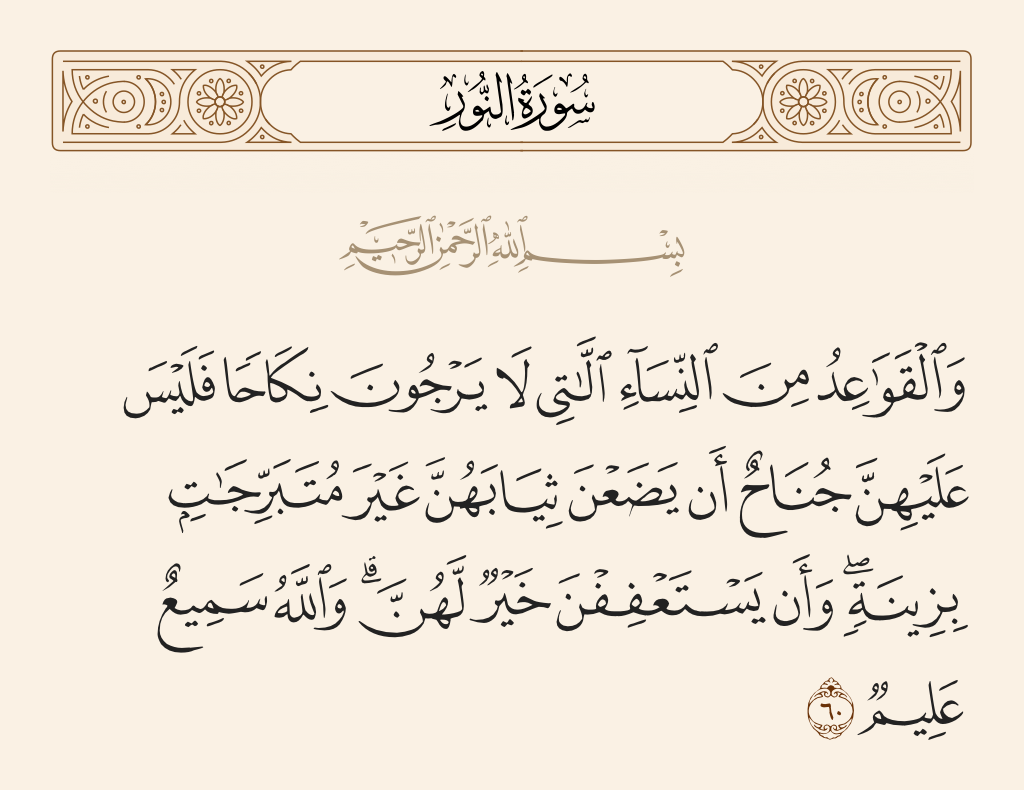 سُورَةُ النُّورِ
بِسْمِ ٱللَّهِ ٱلرَّحْمَٰنِ ٱلرَّحِيمِ
وَٱلْقَوَٰعِدُ مِنَ ٱلنِّسَآءِ ٱلَّـٰتِى لَا يَرْجُونَ نِكَاحًا فَلَيْسَ
عَلَيْهِنَّ جُنَاحٌ أَن يَضَعْنَ ثِيَابَهُنَّ غَيْرَ مُتَبَرِّجَـٰتٍۭ
بِزِينَةٍ ۖ وَأَن يَسْتَعْفِفْنَ خَيْرٌ لَّهُنَّ ۗ وَٱللَّهُ سَمِيعٌ
عَلِيمٌ ٦٠